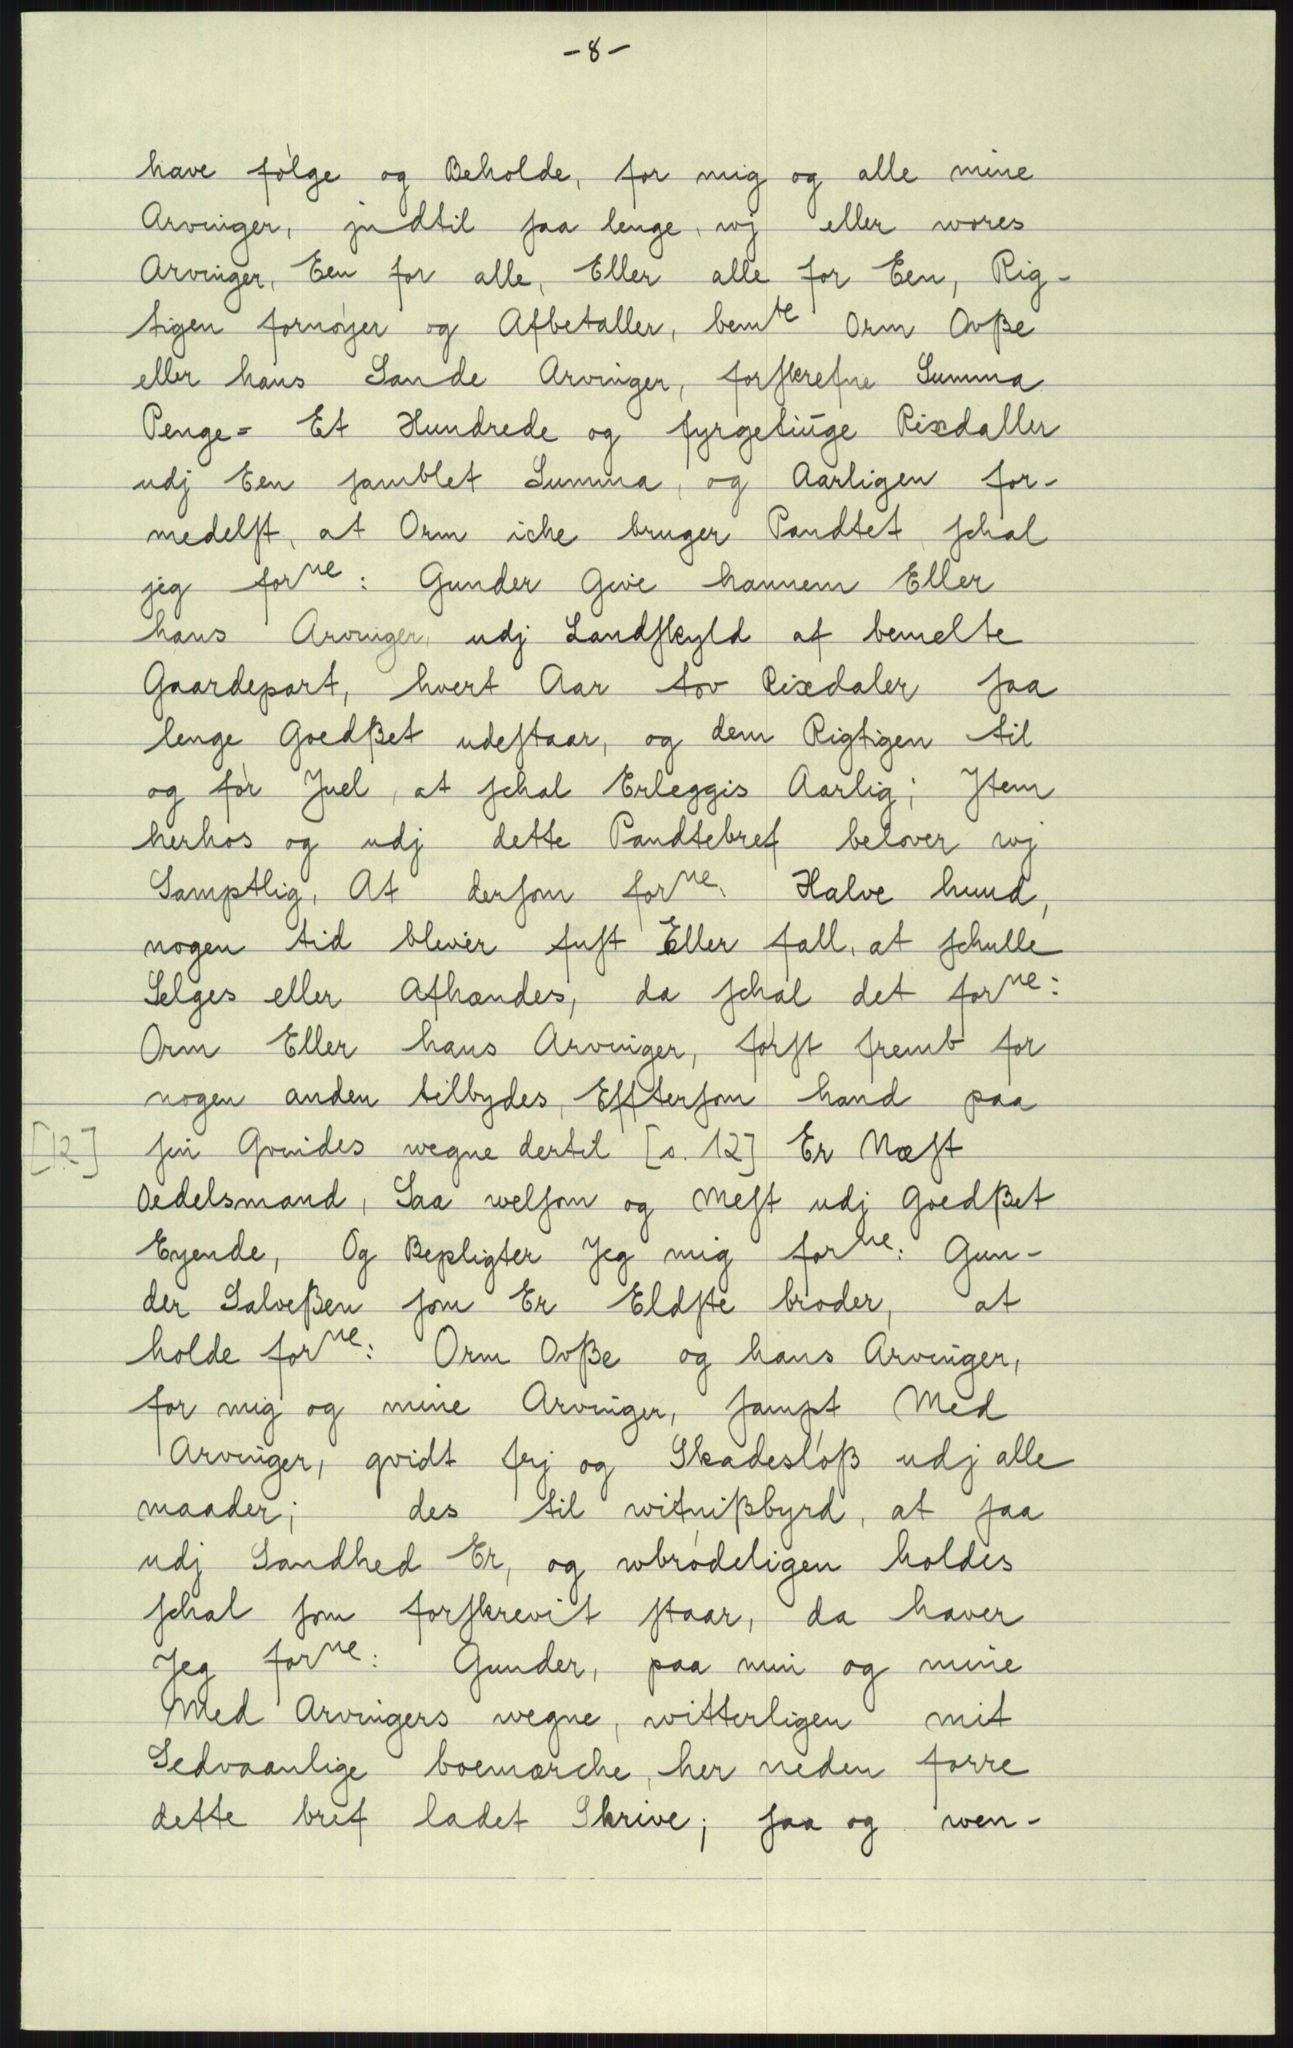 -8-
have følge og Beholde, for mig og alle mine
Arvinger, jndtil saa lenge, wj eller wores
Arvinger, Een for alle, Eller alle for Een, Rig-
tigen fornøyer og Afbetaller, bemte Orm Ovße
eller hans Sande Arvinger, forskrefne Summa
Penge= Et Hundrede og fyrgetiuge Rixdaller
udj Een samblet Summa, og Aarligen for-
medelst, at Orm iche bruger Pandtet schal
jeg forne: Gunder Give hannem Eller
hans Arvinger, udj Landskyld af bemelte
Gaardepart, hvert Aar tov Rixdaler saa
lenge Goedßet udestaar, og dem Rigtigen til
og før Juel, at schal Erleggis Aarlig; Jtem
herhos og udj dette Pandtebref belover wj
Samptlig, At dersom forne. Halve huud,
nogen tid blever fust Eller fall, at schulle
Selges eller Afhændes, da schal det forne:
Orm Eller hans Arvinger, først fremb for
nogen anden tilbydes, Efftersom hand paa
[12] sin Qvindes wegne dertil [s. 12] Er Næst
Oedelsmand, Saa welsom og Mest udj Goedßet
Eyende, Og Bepligter Jeg mig forne: Gun-
der Salveßen som Er Eldste broder, at
holde forne: Orm Ovße og hans Arvinger,
for mig og mine Arvinger, sampt Med
Arvinger, qvidt frj og Skadesløß udj alle
maader; des til witnißbyrd, at saa
udj Sandhed Er, og wbrødeligen holdes
schal som forskrevit staar, da haver
Jeg forne: Gunder, paa min og mine
Med Arvingers wegne, witterligen mit
Sedvaanlige boemærche, her neden forre
dette bref ladet Skrive; saa og wen-